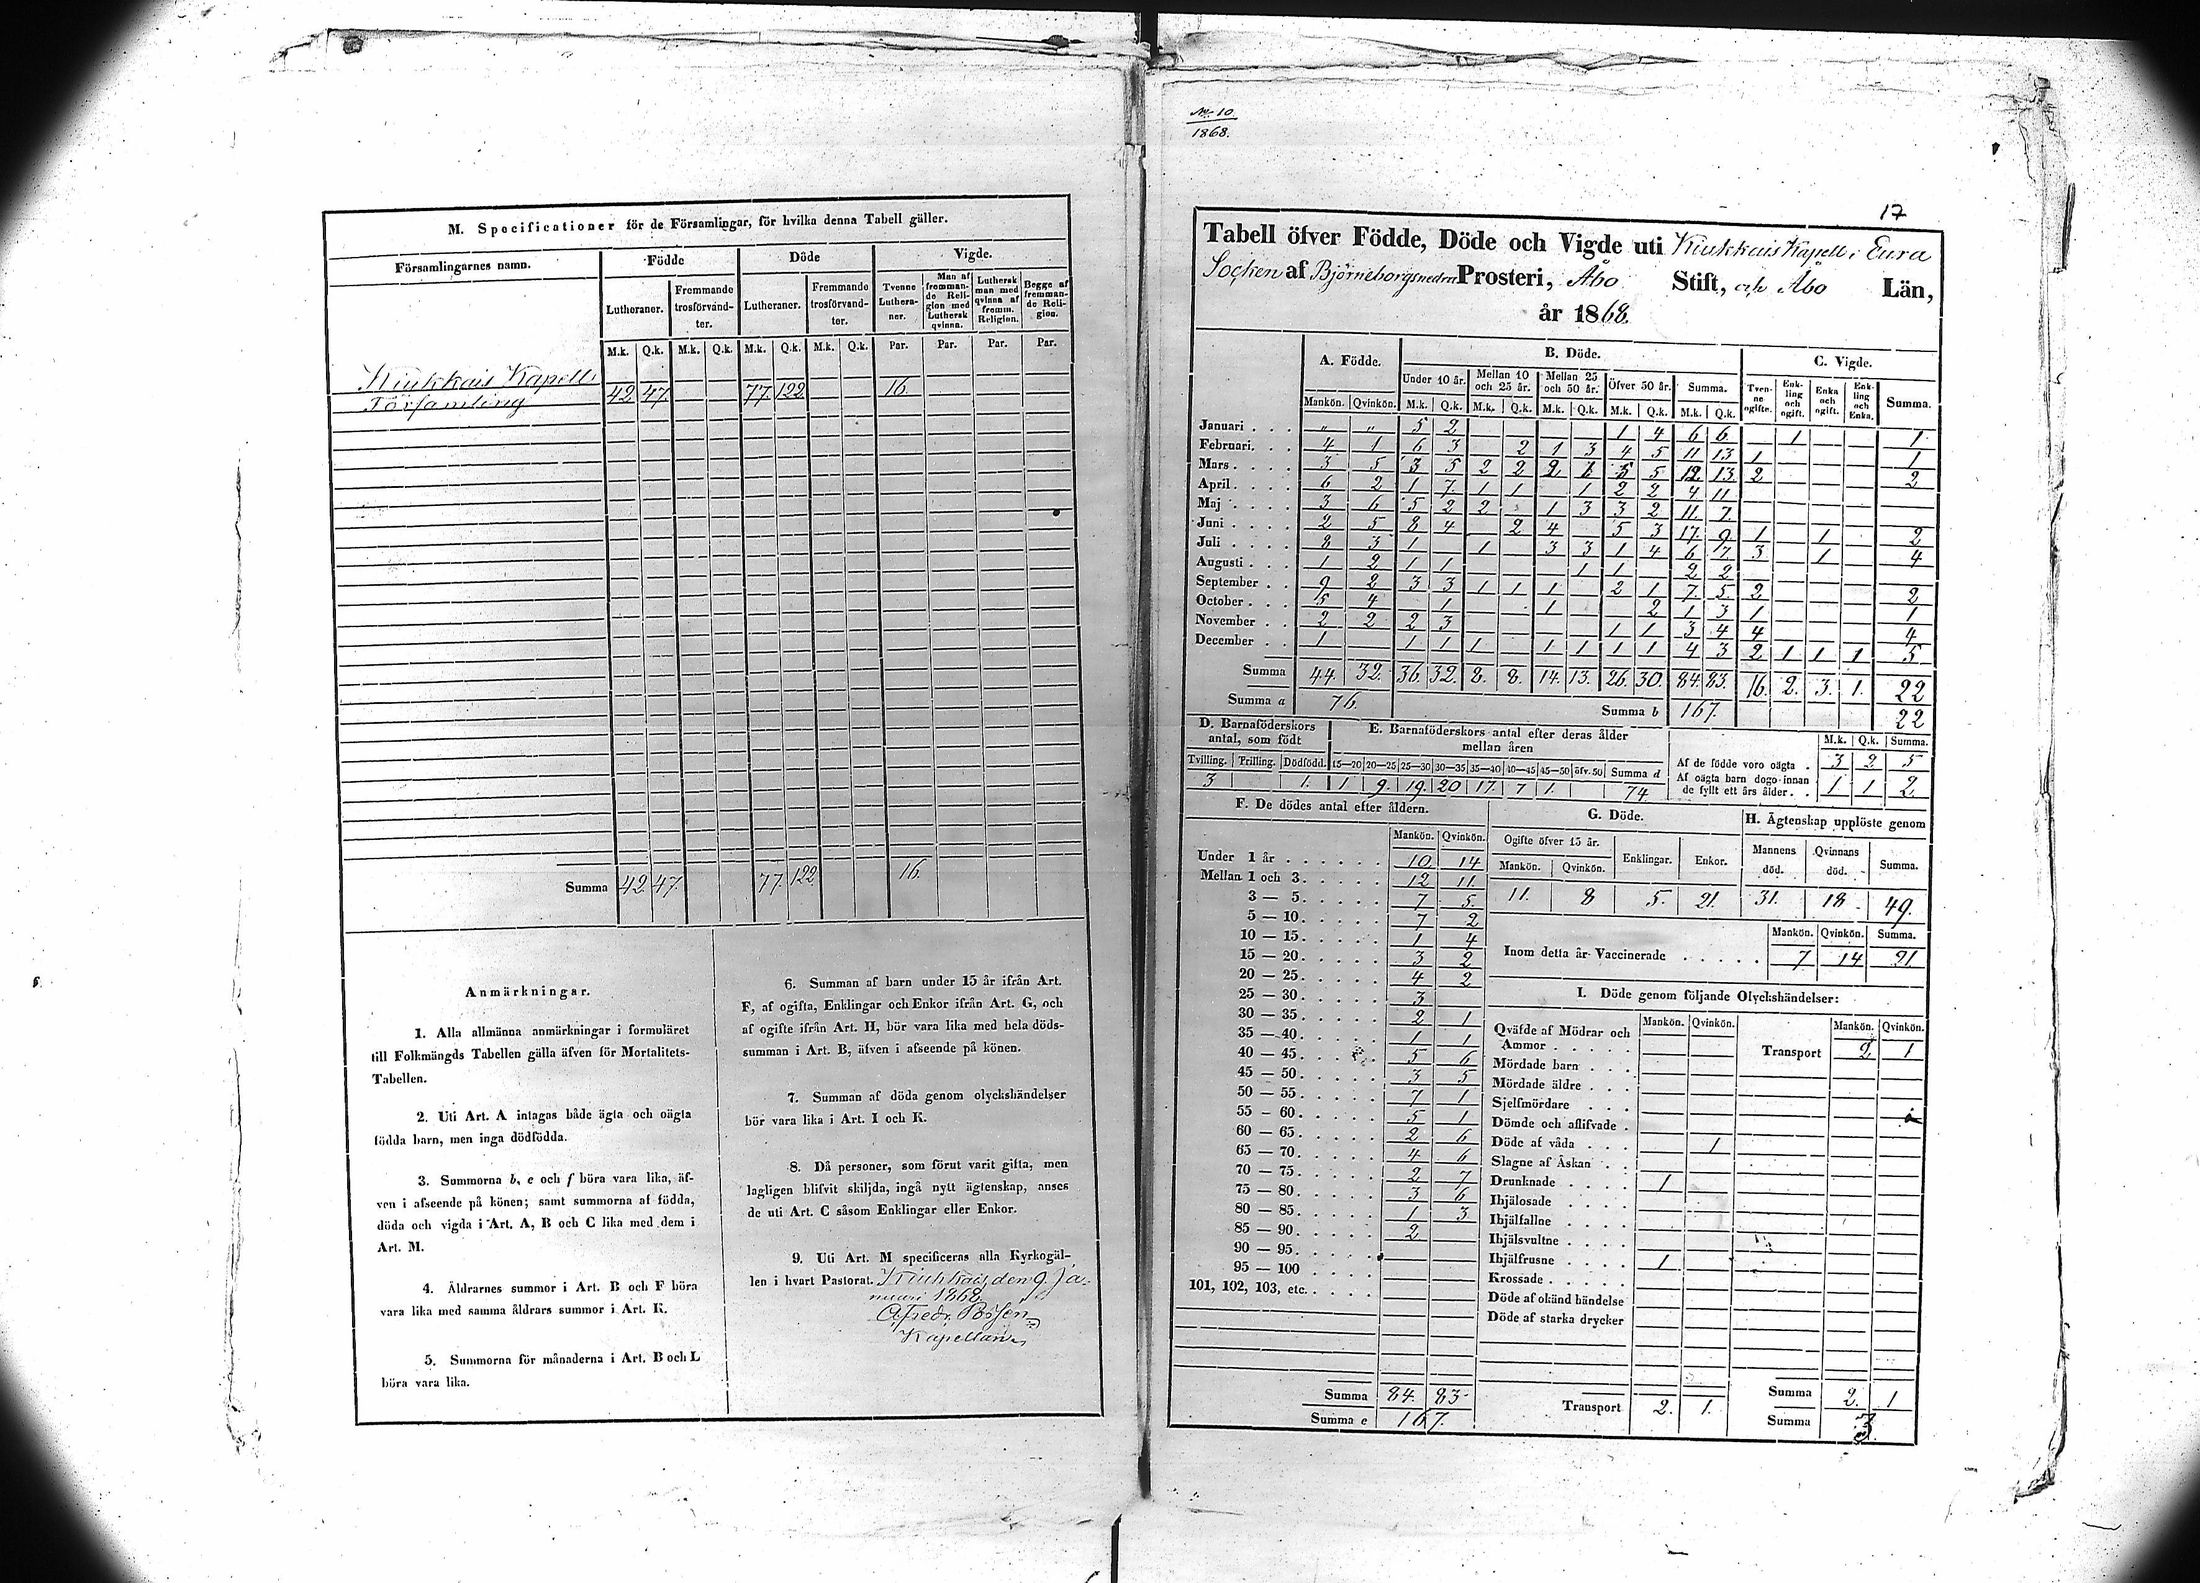 M. Specificationer för de Församlingar, för hvilka denna Tabell gäller.
Församlingarnes namn. Födde Döde Vigde.
Lutheraner. Fremmande trosförvandter. Lutheraner. Fremmande trosförvandter. Tvenne Lutheraner. Man af fremmande Religion med Luthersk qvinna. Luthersk man med qvinna af fremm. Religion. Begge af fremmande Religion.
M.k. Q.k. M.k. Q.k. M.k. Q.k. M.k. Q.k. Par. Par. Par. Par.
Kiukkais Kapells
Församling 42 47 77 122 16
Summa 42 47 77 122 16
Anmärkningar.
1. Alla allmänna anmärkningar i formuläret
till Folkmängds Tabellen gälla äfven för Mortalitets-
Tabellen.
2. Uti Art. A intagas både ägta och oägta
födda barn, men inga dödfödda.
3. Summorna b, e och f böra vara lika, äf-
ven i afseende på könen; samt summorna af födda,
döda och vigda i Art. A, B och C lika med dem i
Art. M.
4. Åldrarnes summor i Art. B och F böra
vara lika med samma åldrars summor i Art. K.
5. Summorna för månaderna i Art. B och L
böra vara lika.
6. Summan af barn under 15 år ifrån Art.
F, af ogifta, Enklingar och Enkor ifrån Art. G, och
af ogifte ifrån Art. H, bör vara lika med hela döds-
summan i Art. B, äfven i afseende på könen.
7. Summan af döda genom olyckshändelser
bör vara lika i Art. I och K.
8. Då personer, som förut varit gifta, men
lagligen blifvit skiljda, ingå nytt ägtenskap, anses
de uti Art. C såsom Enklingar eller Enkor.
9. Uti Art. M specificeras alla Kyrkogäl-
len i hvart Pastorat. Kiukkais den 9 Ja-
nuari 1868
Kapellan
No 10
1868.
17
Tabell öfver Födde, Döde och Vigde uti Kiukkais Kapell i Eura
Socken af Björneborgs nedra Prosteri, Åbo Stift, och Åbo Län,
år 1868.
A. Födde. B. Döde. C. Vigde.
Under 10 år. Mellan 10 och 25 år. Mellan 25 och 50 år. Öfver 50 år. Summa. Tvenne ogifte. Enkling och ogift. Enka och ogift. Enkling och Enka. Summa.
Mankön. Qvinkön. M.k. Q.k. M.k. Q.k. M.k. Q.k. M.k. Q.k. M.k. Q.k.
Januari . . . " " 5 2 1 4 6 6 1 1
Februari. . . 4 1 6 3 2 1 3 4 5 11 13 1 1
Mars . . . . 3 5 3 5 2 2 2 1 5 5 12 13 2 2
April . . . . 6 2 1 7 1 1 1 2 2 4 11
Maj . . . . 3 6 5 2 2 1 3 3 2 11 7
Juni . . . . 2 5 8 4 2 4 5 3 17 9 1 1 2
Juli . . . . 8 3 1 1 3 3 1 4 6 7 3 1 4
Augusti . . . 1 2 1 1 1 1 2 2
September . . 9 2 3 3 1 1 1 2 1 7 5 2 2
October . . . 5 4 1 1 2 1 3 1 1
November . . 2 2 2 3 1 1 3 4 4 4
December . . 1 1 1 1 1 1 1 1 4 3 2 1 1 1 5
Summa 44. 32. 36. 32. 8. 8. 14. 13. 26. 30. 84. 83. 16. 2. 3. 1. 22
Summa a 76. Summa b 167. 22
D. Barnaföderskors antal, som födt
Tvilling. Trilling. Dödfödd.
3 1.
E. Barnaföderskors antal efter deras ålder
mellan åren
15—20 20—25 25—30 30—35 35—40 40—45 45—50 öfv. 50 Summa d
1 9. 19. 20 17. 7 1. 74
M.k. Q.k. Summa.
Af de födde voro oägta . 3 2 5
Af oägta barn dogo innan
de fyllt ett års ålder. . 1 1 2
F. De dödes antal efter åldern.
Mankön. Qvinkön.
Under 1 år . . . . . . 10 14
Mellan 1 och 3 . . . . . 12 11
3 — 5 . . . . . 7 5
5 — 10 . . . . . 7 2
10 — 15 . . . . . 1 4
15 — 20 . . . . . 3 2
20 — 25 . . . . . 4 2
25 — 30 . . . . . 3
30 — 35 . . . . . 2 1
35 — 40 . . . . . 1 1
40 — 45 . . . . . 5 6
45 — 50 . . . . . 3 5
50 — 55 . . . . . 7 1
55 — 60 . . . . . 5 1
60 — 65 . . . . . 2 6
65 — 70 . . . . . 4 6
70 — 75 . . . . . 2 7
75 — 80 . . . . . 3 6
80 — 85 . . . . . 1 3
85 — 90 . . . . . 2
90 — 95 . . . . .
95 — 100 . . . .
101, 102, 103, etc. . . .
Summa 84. 83
Summa e 167.
G. Döde.
Ogifte öfver 15 år. Enklingar. Enkor.
Mankön. Qvinkön.
11. 8 5. 21.
H. Ägtenskap upplöste genom
Mannens död. Qvinnans död. Summa.
31. 18 49.
Mankön. Qvinkön. Summa.
Inom detta år Vaccinerade . . . . . 7 14 21
I. Döde genom följande Olyckshändelser:
Mankön. Qvinkön. Mankön. Qvinkön.
Qväfde af Mödrar och
Ammor . . . . . Transport 2 1
Mördade barn . . .
Mördade äldre . . .
Sjelfmördare . . .
Dömde och aflifvade .
Döde af våda . . . 1
Slagne af Åskan . .
Drunknade . . . . 1
Ihjälosade . . . .
Ihjälfallne . . . .
Ihjälsvultne . . . .
Ihjälfrusne . . . . 1
Krossade . . . . .
Döde af okänd händelse
Döde af starka drycker
Transport 2. 1.
Summa 2. 1
Summa 3.